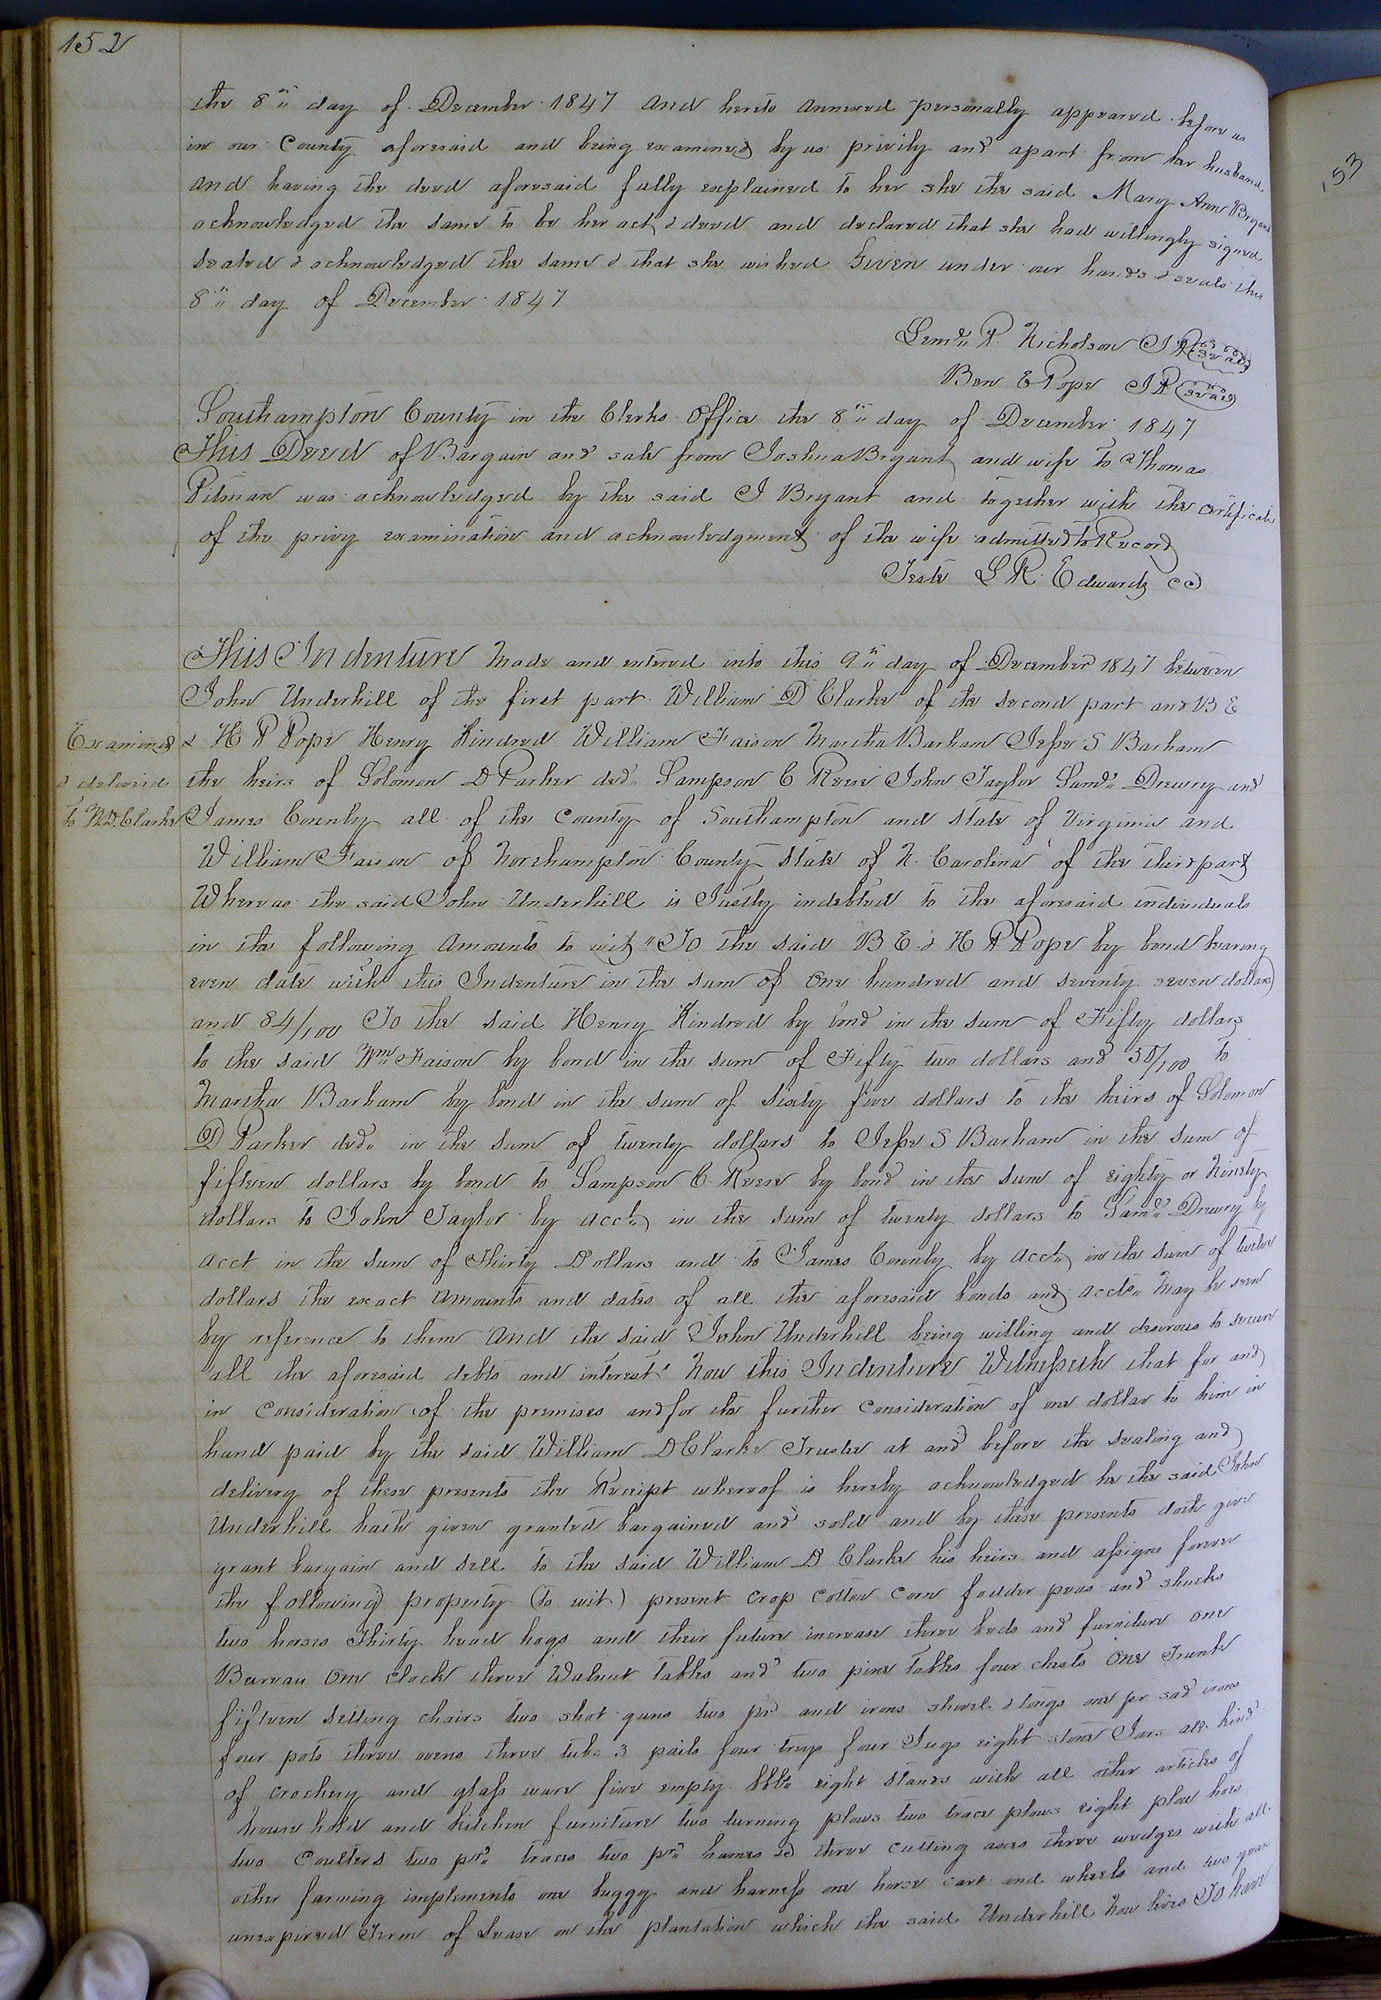 152
the 8th day of December 1847 and hereto annexed personally appeared before us
in our County aforesaid and being examined by us privily and apart from her husband
and having the deed aforesaid fully explained to her she the said Mary Ann Bryant
acknowledged the same to be her act & deed and declared that she had willingly signed
sealed & acknowledged the same & that she wished Given under our hands & seals this
8th day of December 1847
P. Nicholson J P Seal
Ben E Pope J P Seal
Southampton County in the Clerks Office the 8th day of December 1847
This Deed of Bargain and sale from Joshua Bryant and wife to Thomas
Pitman was acknowledged by the said J Bryant and together with the certificate
of the privy examination and acknowledgment of the wife admitted to Record
Teste L R Edwards CC
This Indenture Made and entered into this 9th day of December 1847 between
John Underhill of the first part William D Clarke of the second part and B E
Examined
& H P Pope Henry Kindred William Faison Martha Barham Jesse S Barham
& deliverd
the heirs of Solomon D Parker decd. Sampson C Reese John Taylor Saml. Drewry and
to W.D. Clarke
James County all of the County of Southampton and State of Virginia and
William Faison of Northampton County State of N. Carolina of the third part
Whereas the said John Underhill is Justly indebted to the aforesaid individuals
in the following amounts to wit, "To the said B E & H P Pope by bond bearing
even date with this Indenture in the sum of one hundred and seventy seven dollars
and 84/100 To the said Henry Kindred by bond in the sum of Fifty dollars
to the said Wm Faison by bond in the sum of Fifty two dollars and 50/100 to
Martha Barham by bond in the sum of Sixty five dollars to the heirs of Solomon
D Parker decd. in the sum of twenty dollars to Jesse S Barham in the sum of
fifteen dollars by bond to Sampson C. Reese by bond in the sum of eighty or Ninety
dollars to John Taylor by acct. in the sum of twenty dollars to Saml. Drewry by
acct in the sum of Thirty Dollars and to James County by acct. in the sum of twelve
dollars the exact amounts and dates of all the aforesaid bonds and accts. may be seen
by reference to them And the said John Underhill being willing and desirous to secure
all the aforesaid debts and interest. Now this Indenture Witnesseth that for and
in consideration of the premises and for the further consideration of one dollar to him in
hand paid by the said William D Clarke Trustee at and before the sealing and
delivery of these presents the Receipt whereof is hereby acknowledged he the said John
Underhill hath given granted bargained and sold and by these presents doth give
grant bargain and sell to the said William D Clarke his heirs and assigns forever
the following property (to wit) present crop cotton corn fodder peas and shucks
two horses Thirty head hogs and their future increase three beds and furniture one
Bureau One clock three Walnut tables and two pine Tables four chests one Trunk
fifteen setting chairs two shot guns two pr and irons shovel & tongs one pr sad irons
four pots three ovens three tubs 3 pails four trays four Jugs eight stone Jars all kind
of crockery and glass ware five empty bbls. eight stands with all other articles of
house hold and kitchen furniture two turning plows two trace plows eight plow hoes
two coulters two pr. traces two pr. hames three cutting axes three wedges with all
other farming implements one buggy and harness one horse cart and wheels and two years
unexpired Term of Lease on the plantation which the said Underhill now lives To have
153